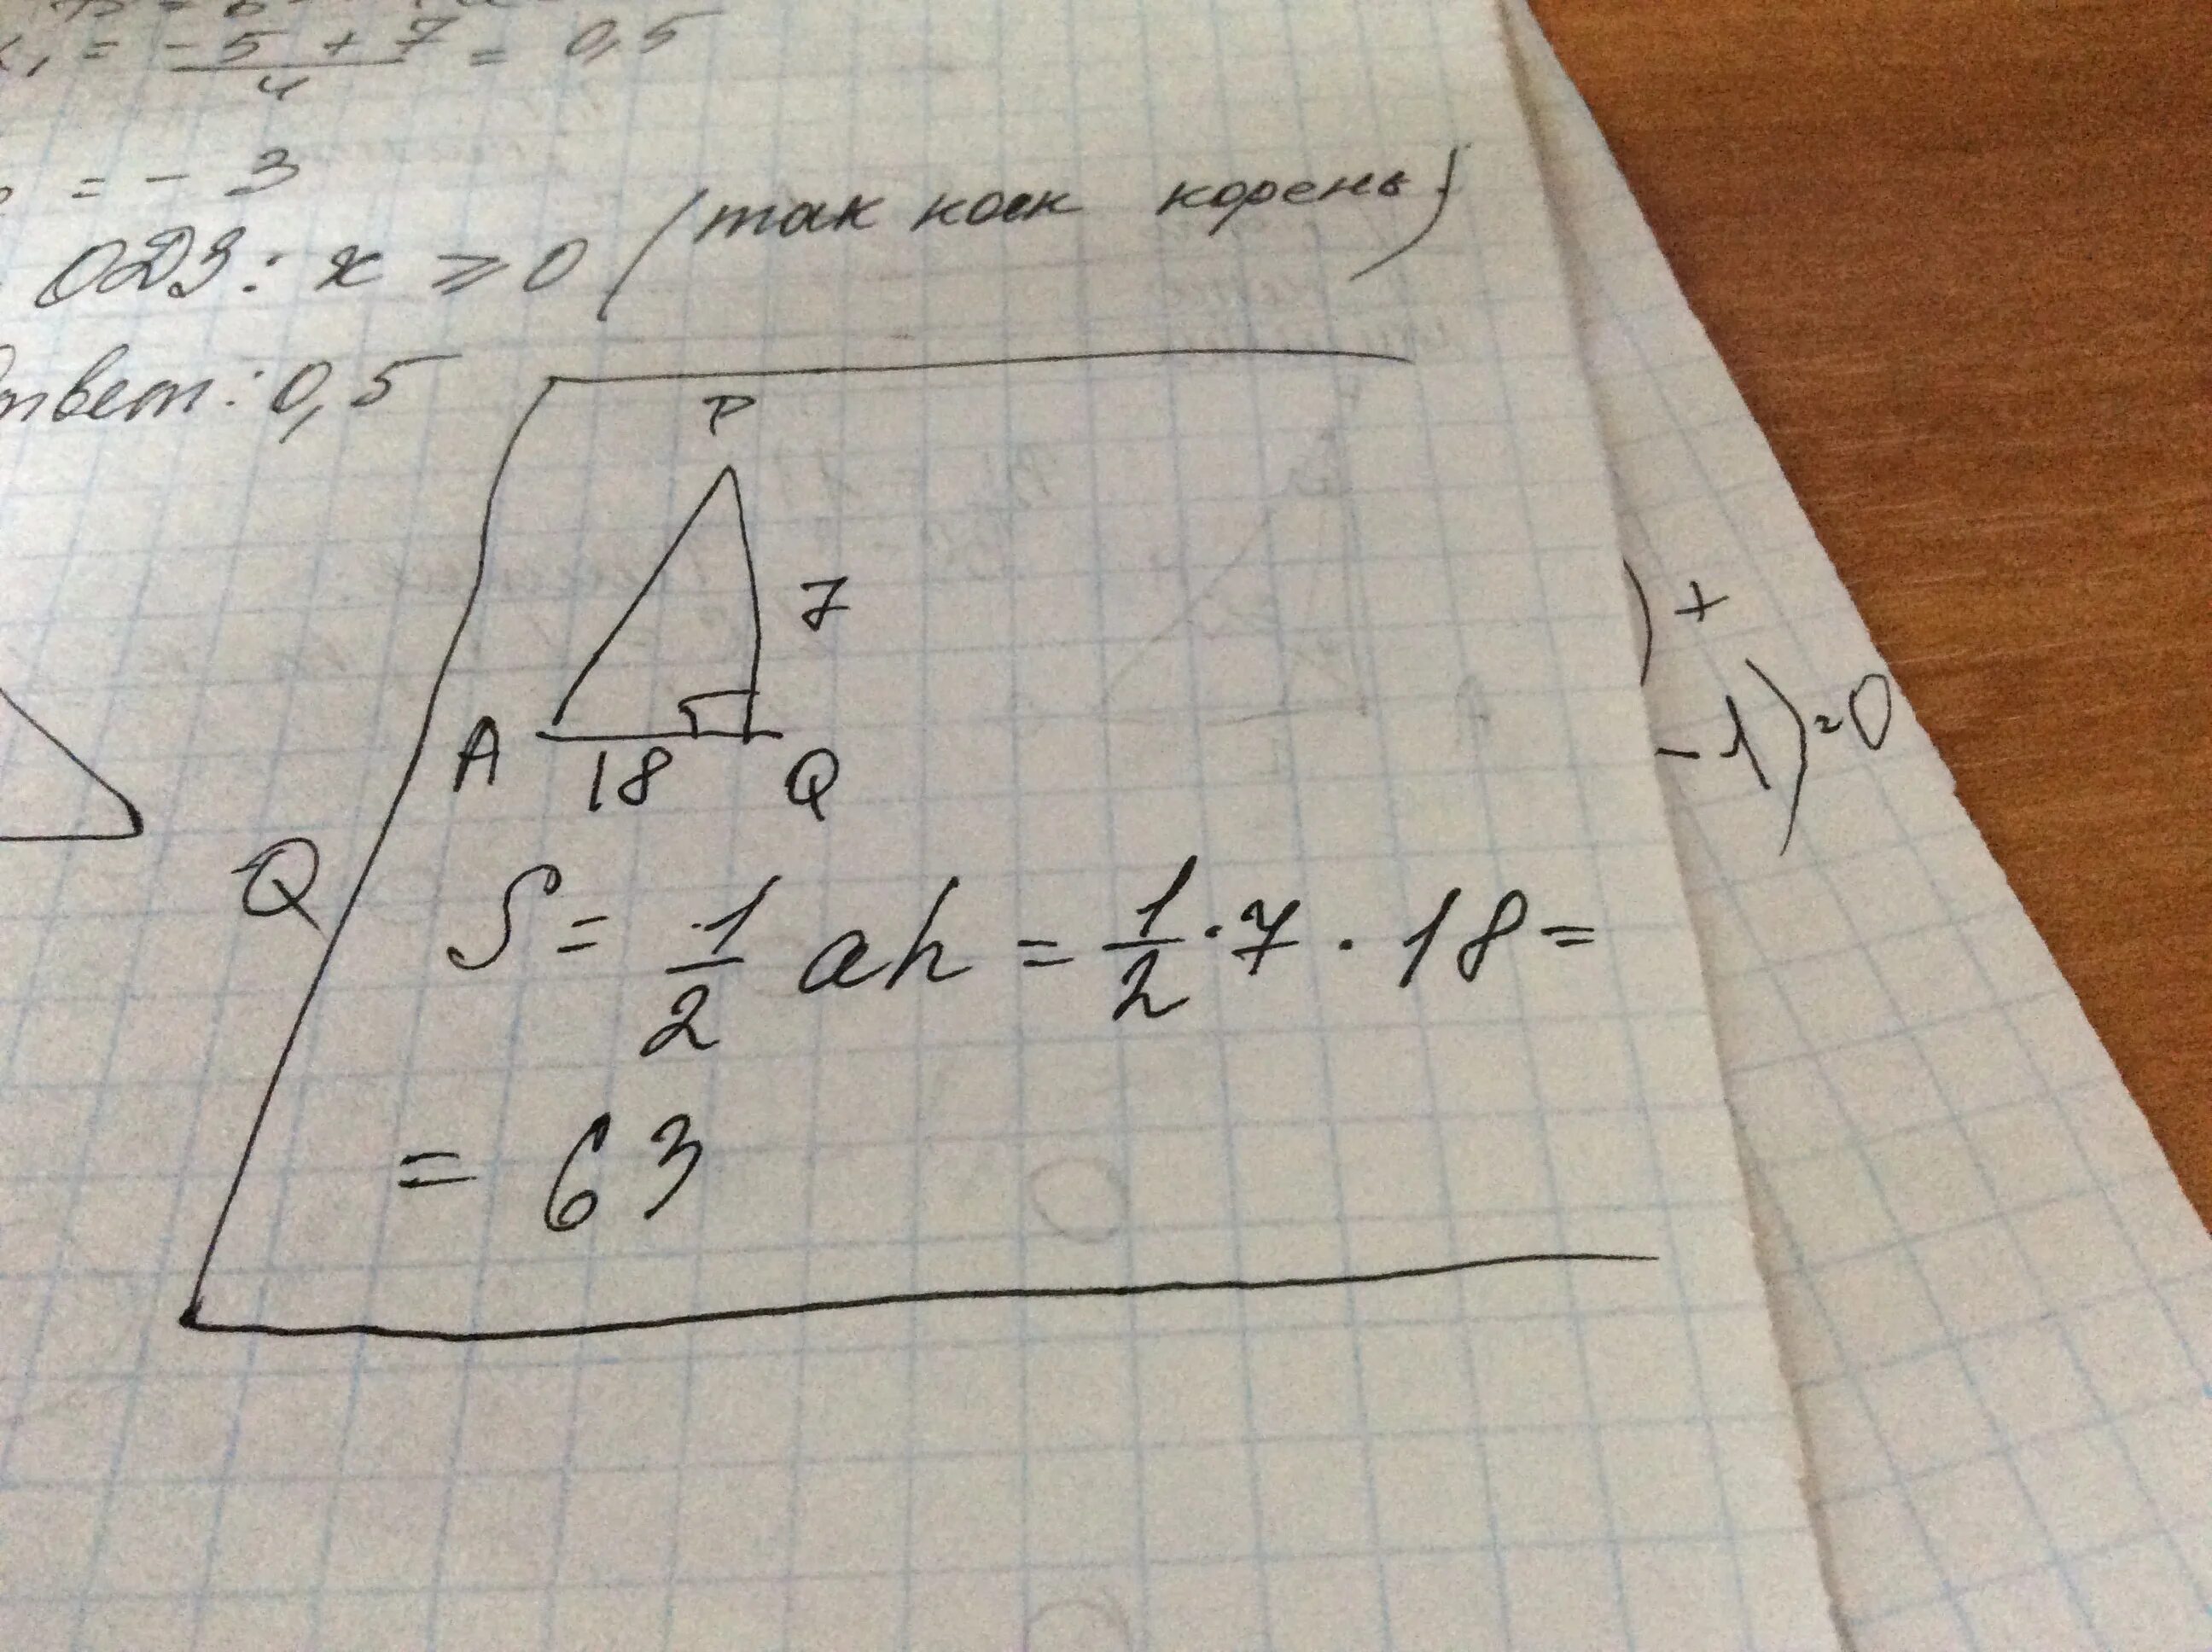 x₁ = (-5 + 7)/4 = 0,5
= - 3
ОДЗ: x ⩾ 0 (так как корень)
Ответ: 0,5
P
7
) +
A
18
Q
- 1) = 0
Q
S = 1/2 ah = 1/2 · 7 · 18 =
= 63